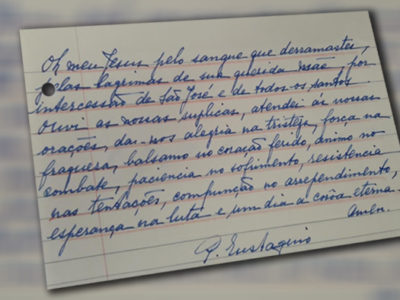 Oh meu Jesus pelo sangue que derramastes,
pelas lagrimas de sua querida mãe, por
intercessão de São José e de todos os santos
ouvi as nossas suplicas, atendei as nossas
orações, dai-nos alegria na tristeja, força na
fraquesa, balsamo no coração ferido, animo no
combate, paciencia no sofrimento, resistência
nas tentações, compunção no arrependimento,
esperança na luta e um dia a corôa eterna.
Amen.
P. Eustaquio